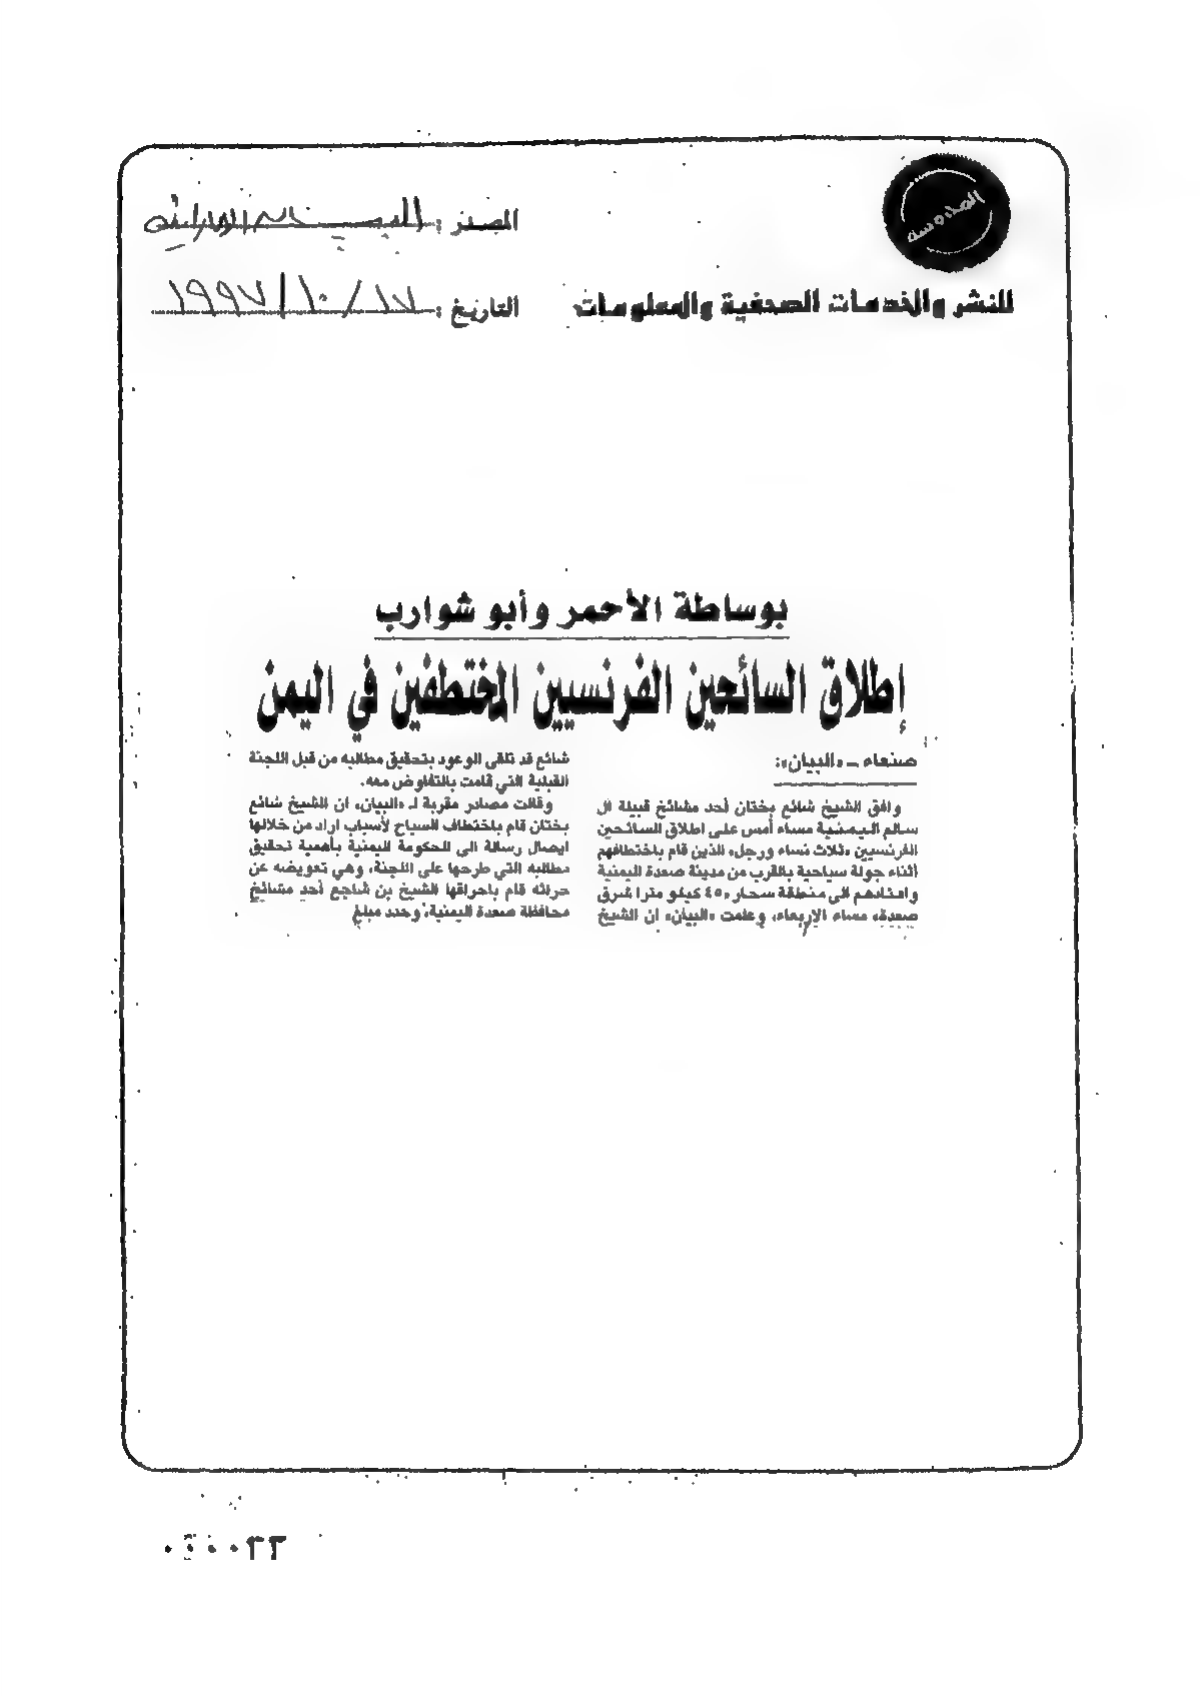 المصدر : البيان الإماراتية
للنشر والخدمات الصحفية والمعلومات
التاريخ : ١٧ / ١٠ / ١٩٩٧
بوساطة الأحمر وأبو شوارب
إطلاق السائحين الفرنسيين المختطفين في اليمن
صنعاء ــ «البيان»:
وافق الشيخ شائع بختان أحد مشائخ قبيلة ال
سالم اليمنية مساء أمس على اطلاق السائحين
الفرنسيين «ثلاث نساء ورجل» الذين قام باختطافهم
أثناء جولة سياحية بالقرب من مدينة صعدة اليمنية
واقتادهم الى منطقة سحار «٤٥ كيلو مترا شرق
صعدة» مساء الإربعاء، وعلمت «البيان» ان الشيخ
شائع قد تلقى الوعود بتحقيق مطالبه من قبل اللجنة
القبلية التي قامت بالتفاوض معه.
وقالت مصادر مقربة لـ «البيان» ان الشيخ شائع
بختان قام باختطاف السياح لأسباب اراد من خلالها
ايصال رسالة الى الحكومة اليمنية بأهمية تحقيق
مطالبه التي طرحها على اللجنة، وهي تعويضه عن
حراثه قام باحراقها الشيخ بن شاجع أحد مشائخ
محافظة صعدة اليمنية، وحدد مبلغ